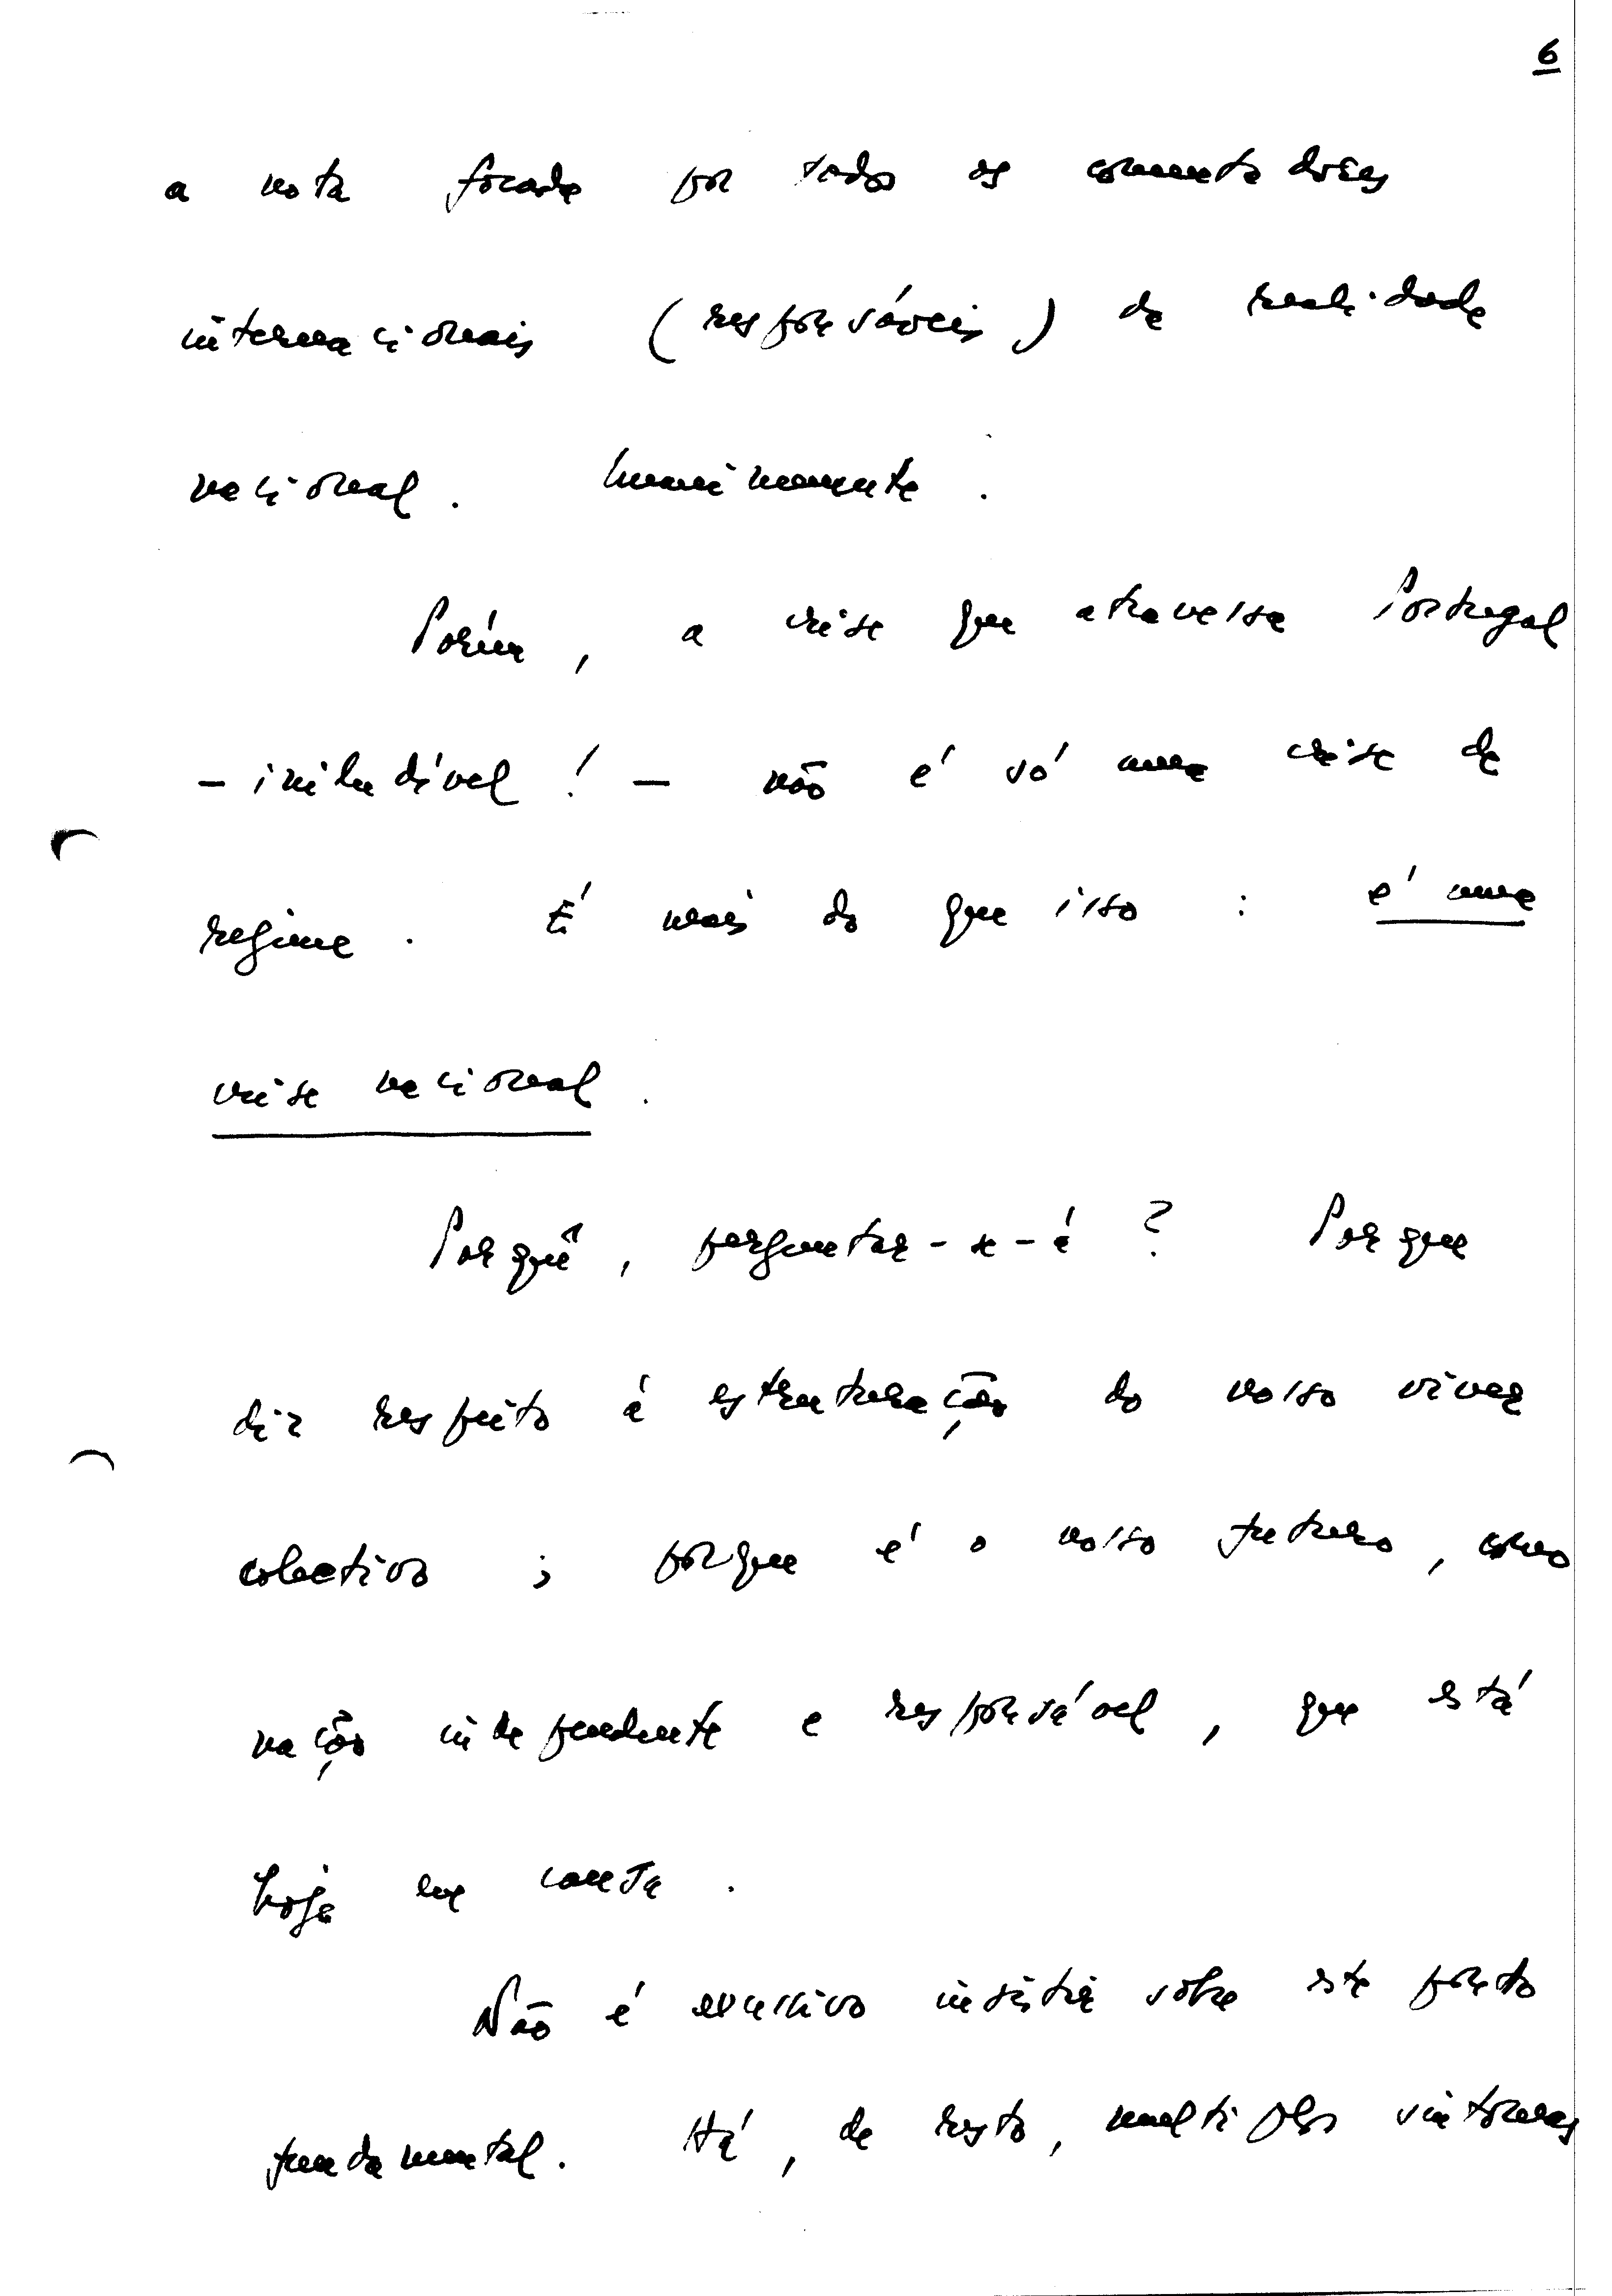 6
a nota focada por todos os comentadores
internacionais (responsáveis) da realidade
nacional. Unanimemente.
Porém, a crise que atravessa Portugal
- iniludível! - não é só uma crise de
regime. É mais do que isso: é uma
crise nacional.
Porquê, perguntar-se-á? Porque
diz respeito à estruturação do nosso viver
colectivo; porque é o nosso futuro, como
nação independente e responsável, que está
hoje em causa.
Não é excessivo insistir sobre este ponto
fundamental. Há, de resto, multiplos sintomas